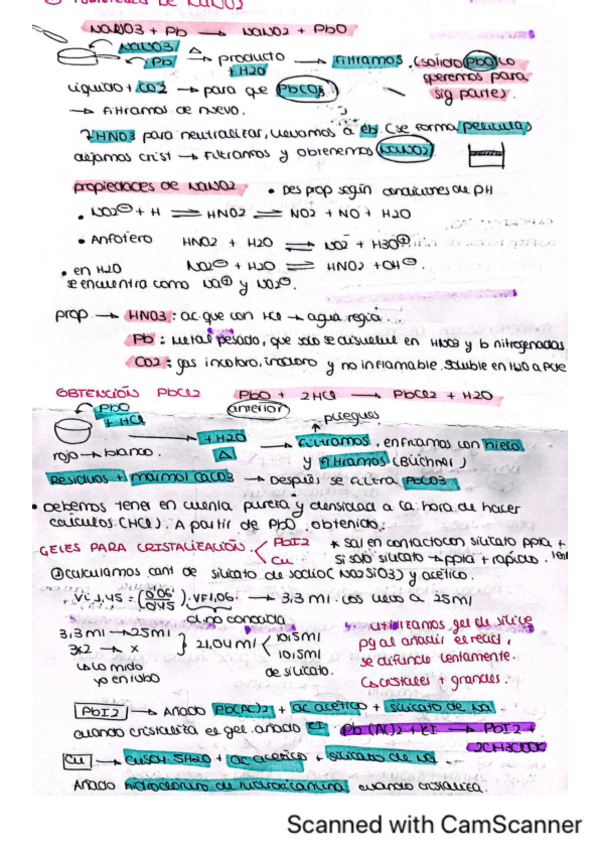 NaNO3 + Pb → NaNO2 + PbO
NaNO3
Pb
Δ
producto
+ H2O
→ Filtramos. (solido PbO lo
queremos para
sig parte).
Liquido + CO2 → para que PbCO3
→ Filtramos de nuevo.
HNO3 para neutralizar, llevamos a eb. (se forma pelicula)
dejamos crist → Filtramos y obtenemos NaNO2
propiedades de NaNO2 • Des prop según condiciones de pH
• NO2⊖ + H ⇌ HNO2 ⇌ NO2 + NO + H2O
• Anfótero HNO2 + H2O ⇌ NO2- + H3O⊕
NO2⊖ + H2O ⇌ HNO2 + OH⊖.
• en H2O
se encuentra como Na⊕ y NO2⊖.
prop → HNO3: ac. que con HCl → agua regia.
Pb: Metal pesado, que solo se disuelve en HNO3 y b nitrogenadas
CO2: gas incoloro, inodoro y no inflamable. Soluble en H2O a
OBTENCIÓN PbCl2 PbO + 2HCl → PbCl2 + H2O
anterior
PbO
+ HCl
pliegues
→ + H2O → Filtramos, enfriamos con hielo
rojo → blanco. Δ y filtramos (Büchner)
Residuos + marmol CaCO3 → Después se filtra PbCO3
• Debemos tener en cuenta pureza y densidad a la hora de hacer
calculos (HCl). A partir de PbO obtenido.
GELES PARA CRISTALIZACIÓN. PbI2 * Sal en contacto con silicato ppta +
Cu si solo silicato → ppta + rapido.
calculamos cant de silicato de sodio (Na2SiO3) y acético.
Vi 1,45 = (0'06/0'45) . VF 1,06. → 3,3 ml. los llevo a 25 ml
dl no conocida
3,3 ml → 25 ml
→ x
} 21,04 ml < 10,5 ml
10,5 ml
de silicato.
yo en tubo
utilizamos gel de sílice
pq al añadir el react,
se difunde lentamente.
cristales + grandes.
PbI2 → Añado Pb(AC)2 + ac acético + silicato de Na.
cuando cristaliza el gel añado KI. Pb(AC)2 + KI → PbI2 +
Cu → + ac acético + silicato de Na.
Añado hidrocloruro de hidroxilamina cuando cristaliza.
Scanned with CamScanner